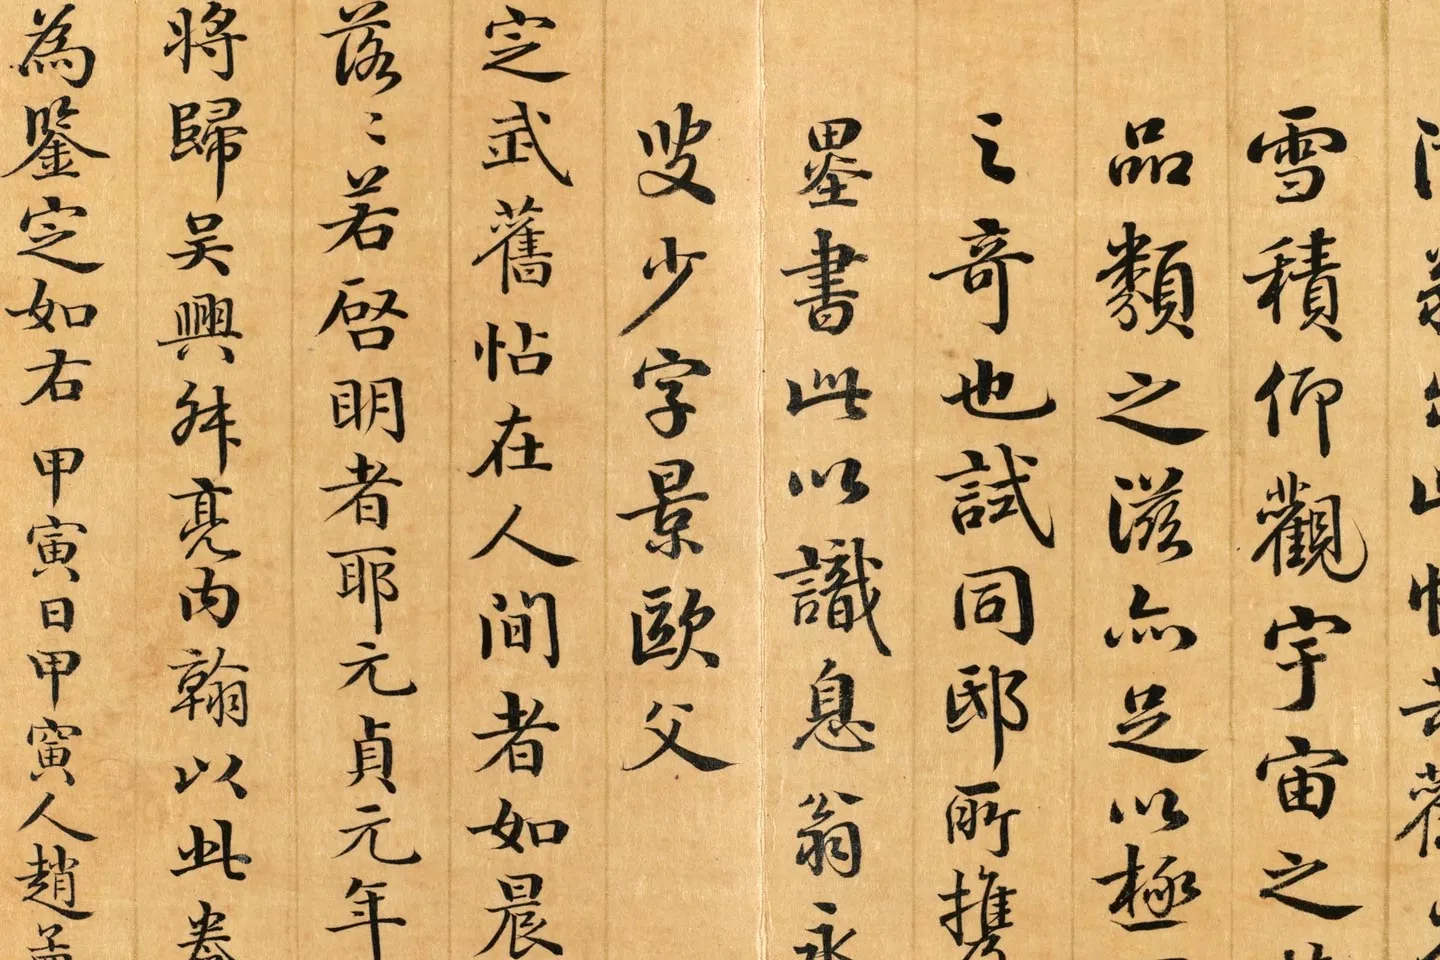 雪積仰觀宇宙之
品類之滋亦足以極
之奇也試同邸所攜
墨書此以識息翁永
叟少字景歐父
定武舊帖在人間者如晨
落〻若啓明者耶元貞元年
將歸吳興昇亮內翰以此卷
為鑒定如右甲寅日甲寅人趙孟